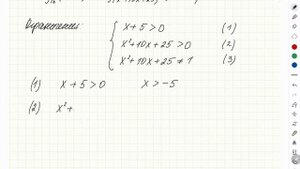 Ограничения:
x + 5 > 0 (1)
x² + 10x + 25 > 0 (2)
x² + 10x + 25 ≠ 1 (3)
(1) x + 5 > 0 x > -5
(2) x² +